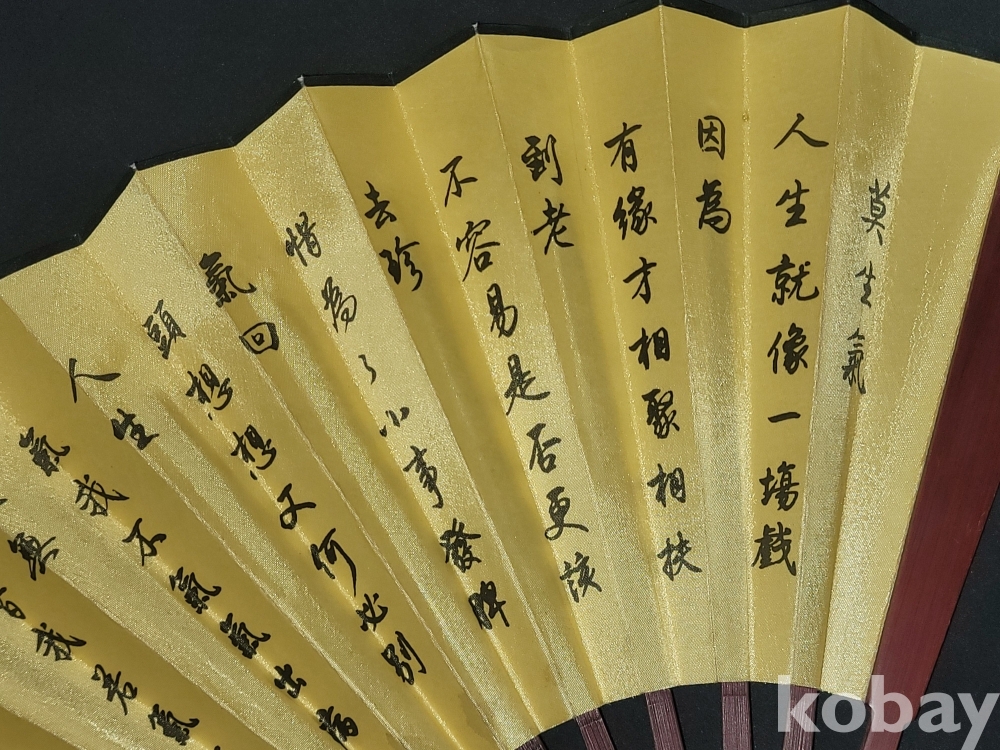 莫生氣
人生就像一場戲
因為
有緣才相聚相扶
到老
不容易是否更該
去珍
惜為了小事發脾
氣回
頭想想又何必別
人生
氣我不氣氣出病
我若氣
kobay